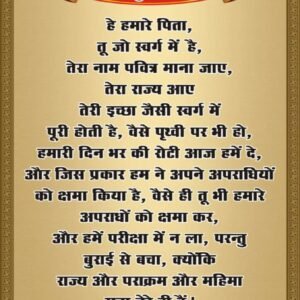 हे हमारे पिता,
तू जो स्वर्ग में है,
तेरा नाम पवित्र माना जाए,
तेरा राज्य आए
तेरी इच्छा जैसी स्वर्ग में
पूरी होती है, वैसे पृथ्वी पर भी हो,
हमारी दिन भर की रोटी आज हमें दे,
और जिस प्रकार हम ने अपने अपराधियों
को क्षमा किया है, वैसे ही तू भी हमारे
अपराधों को क्षमा कर,
और हमें परीक्षा में न ला, परन्तु
बुराई से बचा, क्योंकि
राज्य और पराक्रम और महिमा